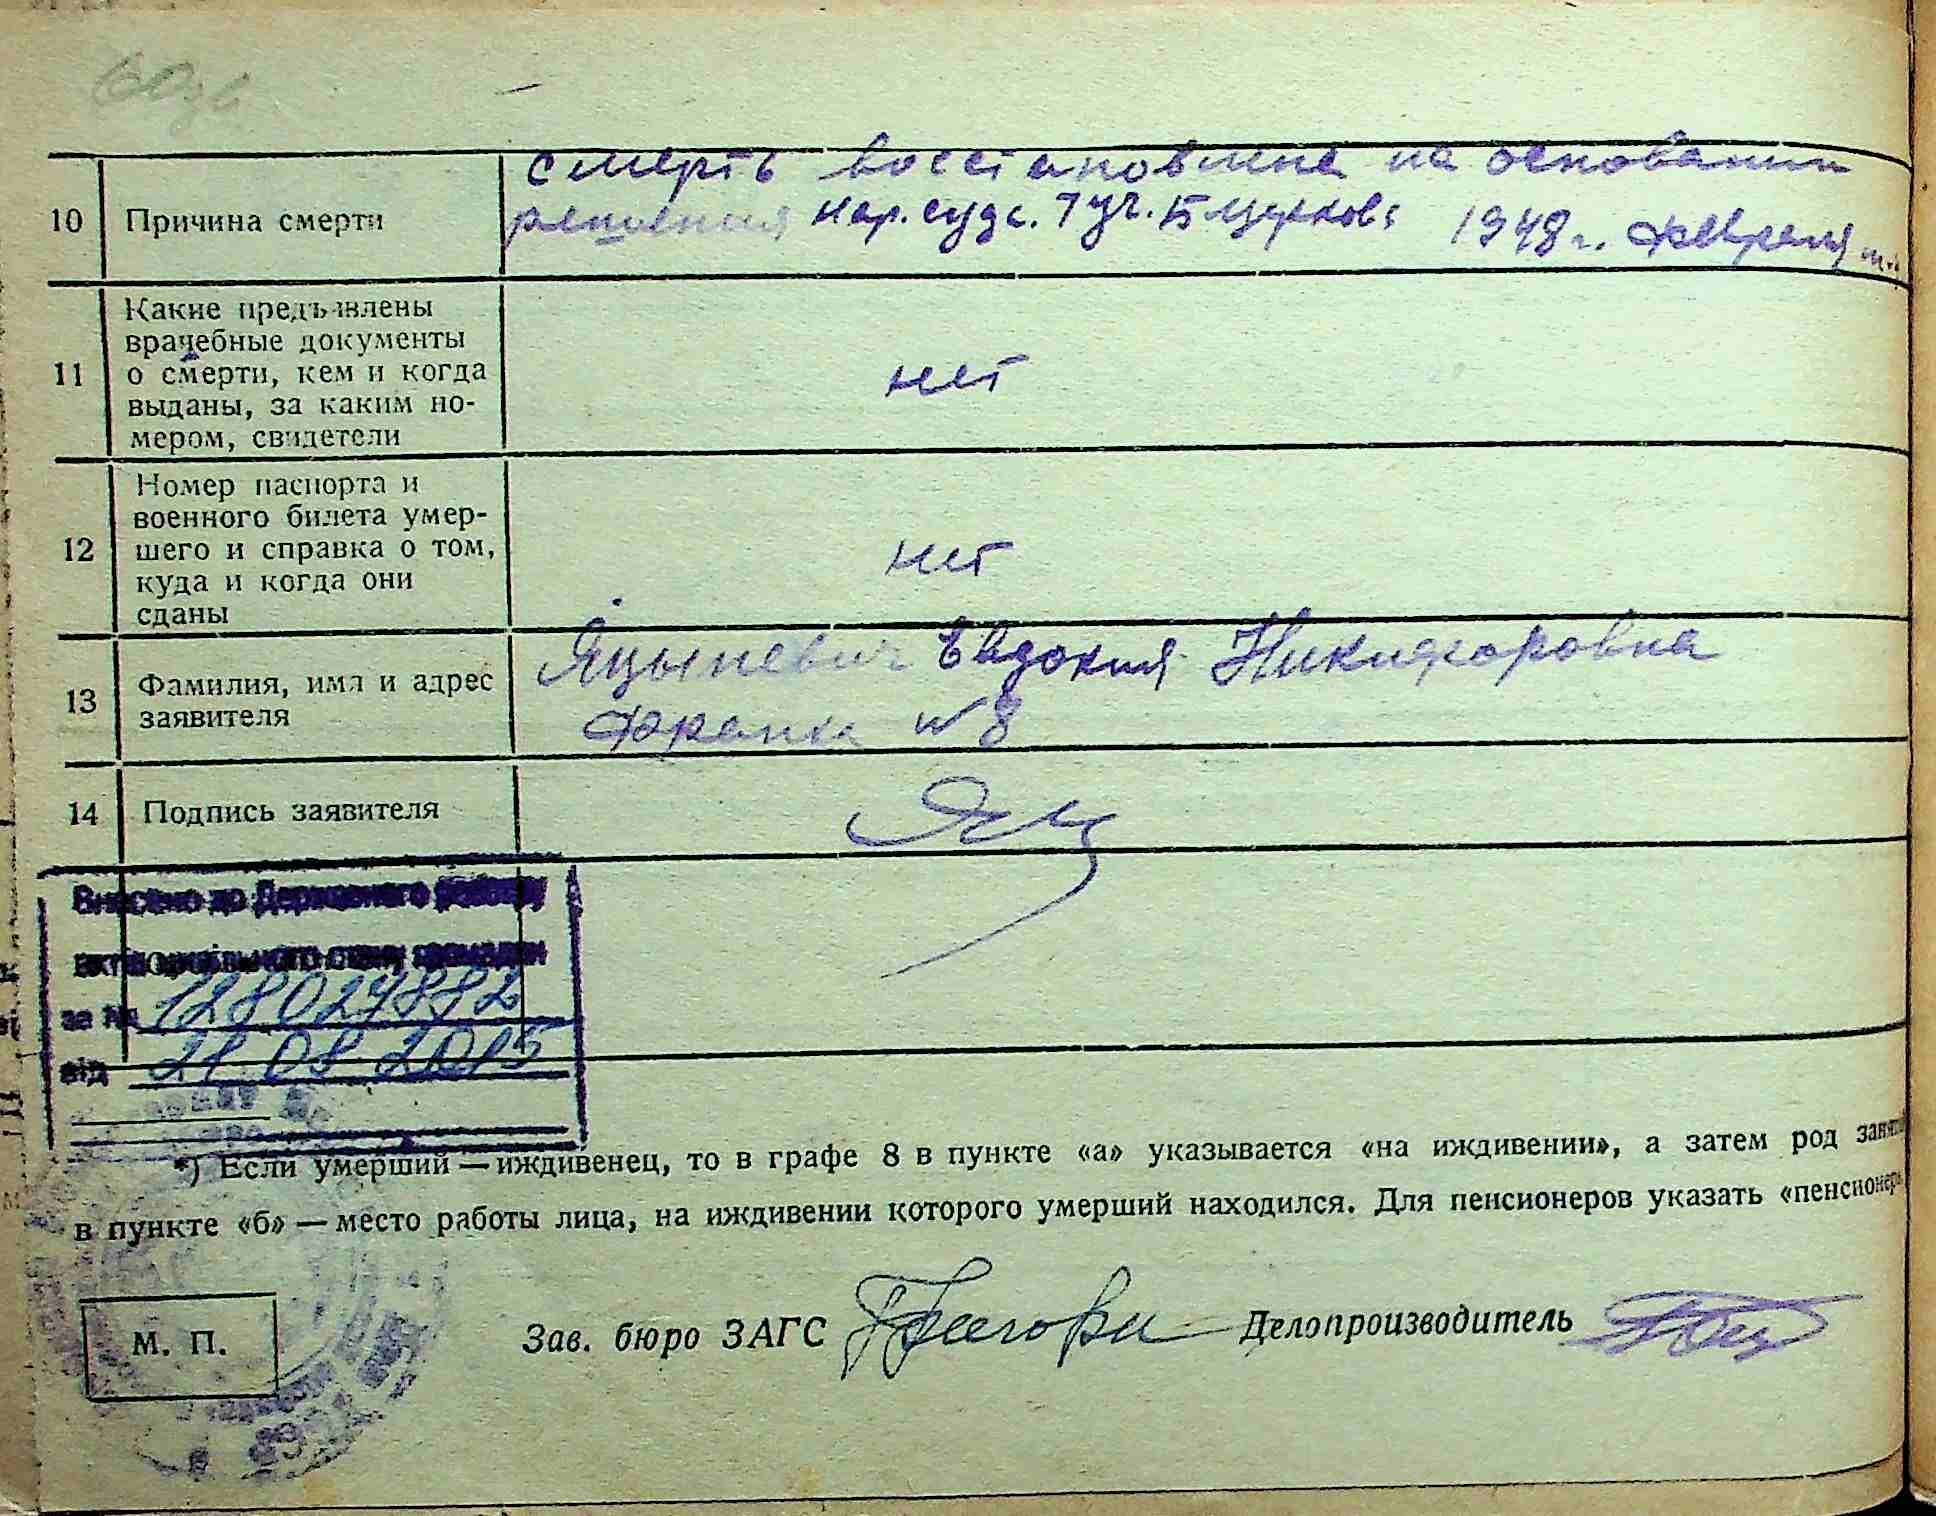 10
Причина смерти
смерть восстановлена на основании
решения нар. суда. 7 уч. Б церковь 1948 г. февраля
11
Какие предъявлены
врачебные документы
о смерти, кем и когда
выданы, за каким но-
мером, свидетели
нет
12
Номер паспорта и
военного билета умер-
шего и справка о том,
куда и когда они
сданы
нет
13
Фамилия, имя и адрес
заявителя
Яцыневич Евдокия Никифоровна
Франка № 8
14
Подпись заявителя
Яц
Внесено до Державного реєстру
актів цивільного стану громадян
за № 128024882
від 21 08 2015
*) Если умерший — иждивенец, то в графе 8 в пункте «а» указывается «на иждивении», а затем род занятий
в пункте «б» — место работы лица, на иждивении которого умерший находился. Для пенсионеров указать «пенсионер»
М. П.
Зав. бюро ЗАГС
Делопроизводитель